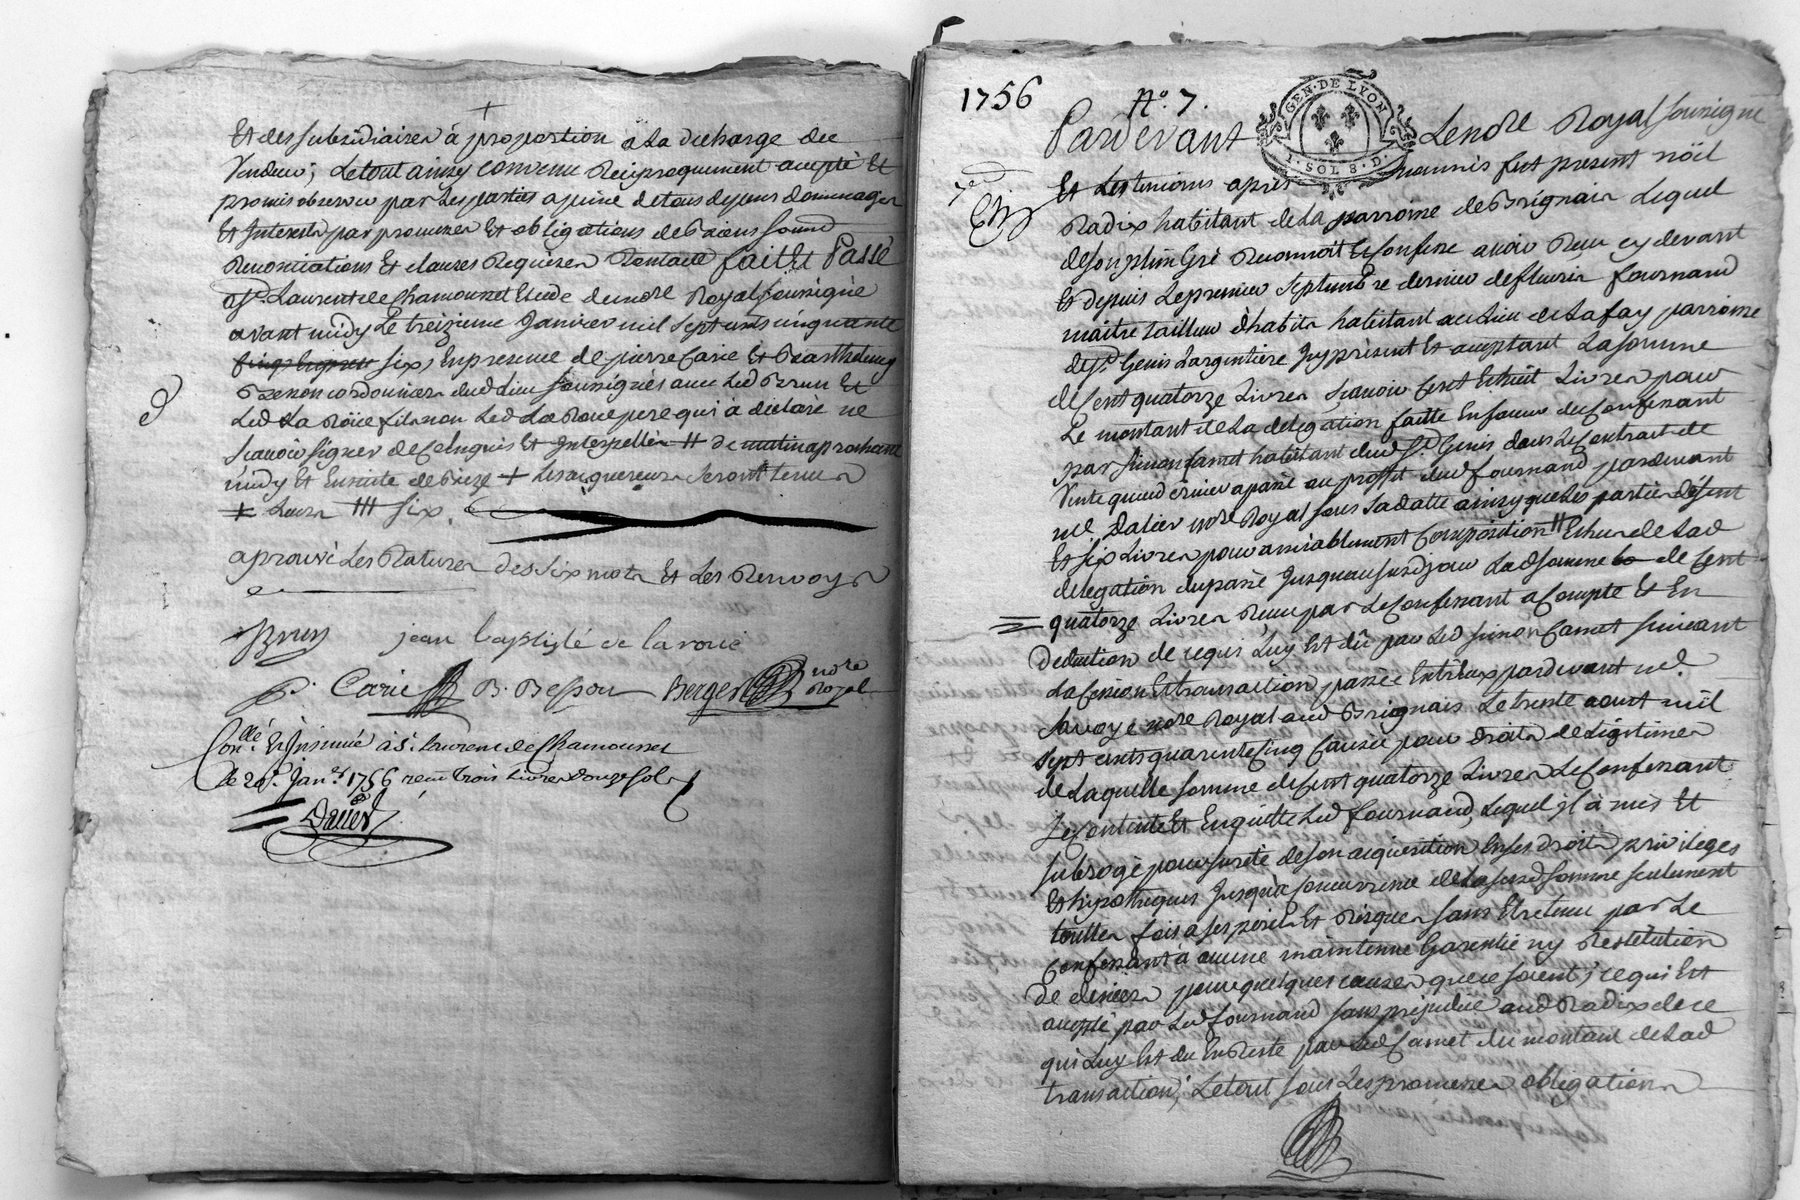 +
Et des subsidiaires à proportion a la decharge du
Vendeur; Le tout ainsy convenu Reciproquement accepté Et
promis observer par Les parties a peine de tous depens dommages
Et Interests par promesses Et obligations de biens soum
Renonciations Et clauses Requises Dont acte fait Et Passé
a St Laurent de Chamousset Etude du nore Royal soussigné
avant midy Le treizieme Janvier mil sept cents cinquante
six, En presence de pierre Carie Et Barthelemy
Besson cordonniers dud lieu soussignés avec Led Brun Et
Led La Roüe fils non Led La Roue pere qui à declaré ne
scavoir signer de ce Enquis Et Interpellés # de
midy Et Ensuite de + Les acquereurs seront tenus
+ Leurs ### six.
aprouvé Les Ratures des six mots Et Les Renvoys
Brun jean baptisté de la roüe
P. Carie B. Besson Berger nore Royal
Conllé Et Insinué à St. Laurent de Chamousset
le 20e. Janer 1756 receu trois livres douze sols
Dalier
1756 No. 7.
GEN. DE LYON
1. SOL 8. D.
Pardevant Le nore Royal soussigné
Et Les temoins après nommés fut present nöel
Radix habitant de La parroisse de Brignais Lequel
de son plein Gré Reconnoit Et Confesse avoir Receu cy devant
Et depuis Le premier Septembre dernier de fleurie fournand
maitre tailleur d'habits habitant au Lieu de Lafay parroisse
de St. Genis Largentiere Icy présent Et acceptant La somme
de Cent quatorze Livres scavoir Cent Et huit Livres pour
Le montant de La delegation faitte En faveur du Confessant
par Simon Camet habitant dud St. Genis dans Le Contract de
Vente qu'au dernier a passé au proffit dud fournand pardevant
me. Dalier nore Royal sous sa datte ainsy que Les parties disent
Et six Livres pour amiablement Composition # Echus de Lad
delegation du passé Jusquau susd jour Lad somme de Cent
quatorze Livres Receu par Le Confessant a Compte Et En
deduction de ce qui Luy Est dû par Led Simon Camet suivant
La Cession Et transaction passée Entreux pardevant me.
Savoye nore Royal aud Brignais Le trente aout mil
sept cents quarente Cinq Causée pour droits de Légitimes
de Laquelle somme de Cent quatorze Livres Le Confessant
Se Contente Et En quitte Led fournand, Lequel il à mis Et
subrogé pour sureté de son acquisition En ses droits privileges
Et hypotheques Jusqu'a Concurrence de La susd somme seulement
touttes fois a ses perils Et Risques sans Etre tenu par Le
Confessant à aucune maintenue Garentie ny Restitution
de deniers pour quelques causes que ce soient; ce qui Est
accepté par Led fournand sans prejudice aud Radix de ce
qui Luy Est du En Reste par Led Camet du montant de Lad
transaction; Le tout sous Les promesses obligations